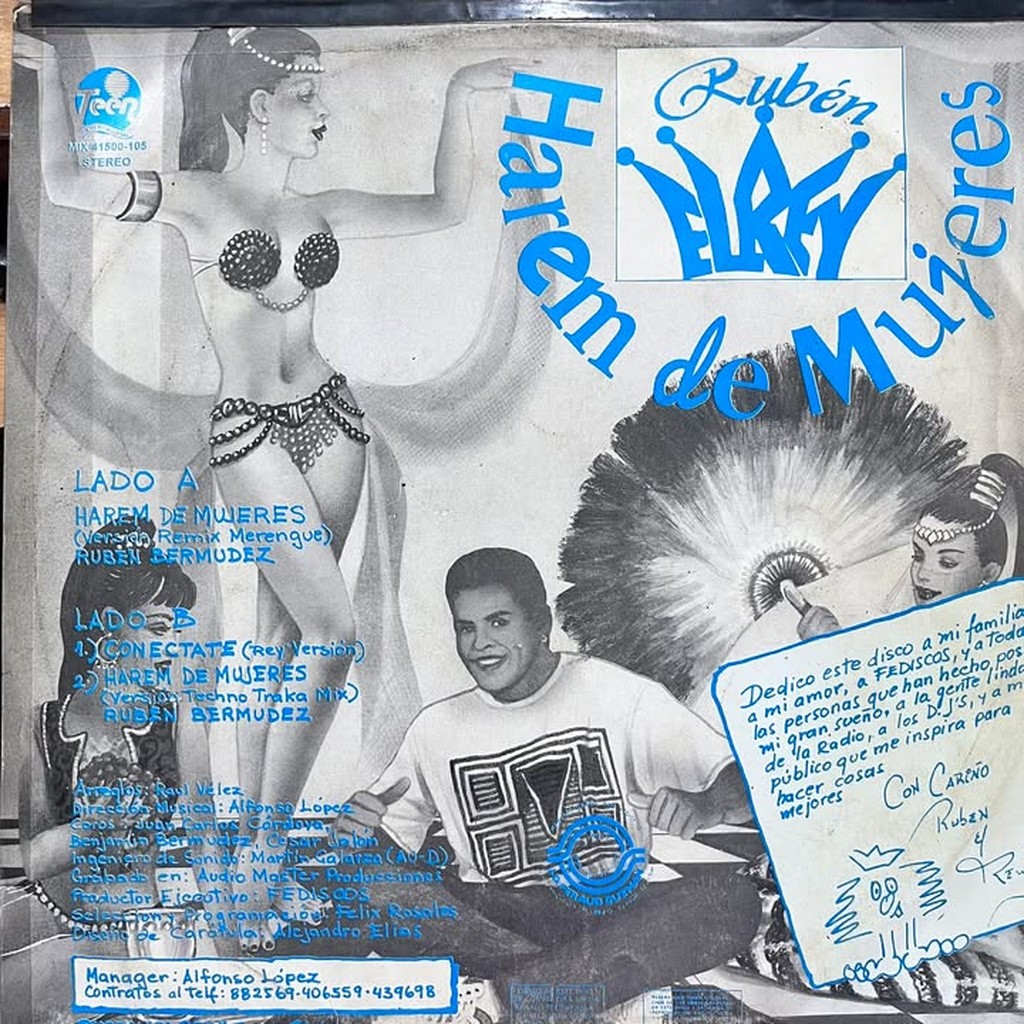 Teen
MIX 41500-105
STEREO
Rubén
EL REY
Harem de Mujeres
LADO A
HAREM DE MUJERES
(Versión Remix Merengue)
RUBEN BERMUDEZ
LADO B
1.) CONECTATE (Rey Versión)
2.) HAREM DE MUJERES
(Versión Techno Traka Mix)
RUBEN BERMUDEZ
Arreglos: Raul Vélez
Dirección Musical: Alfonso López
Coros: Juan Carlos Córdova,
Benjamin Bermudez, Cesar Jalón
Ingeniero de Sonido: Martin Galarza (AU-D)
Grabado en: Audio Master Producciones
Productor Ejecutivo: FEDISCOS
Seleccion y Programación: Felix Rosales
Diseño de Carátula: Alejandro Elias
Manager: Alfonso López
Contratos al Telf.: 882569-406559-439698
Dedico este disco a mi familia
a mi amor, a FEDISCOS, y a Toda
las personas que han hecho pos
mi gran sueño, a la gente linda
de la Radio, a los D.J'S, y a m
público que me inspira para
hacer cosas
mejores
CON CARIÑO
RUBEN